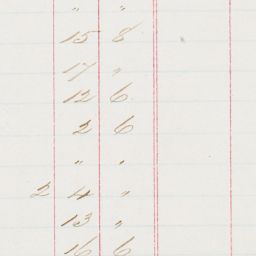 " "
15 8
17 "
12 6
2 6
" "
2 4 "
13 "
16 6